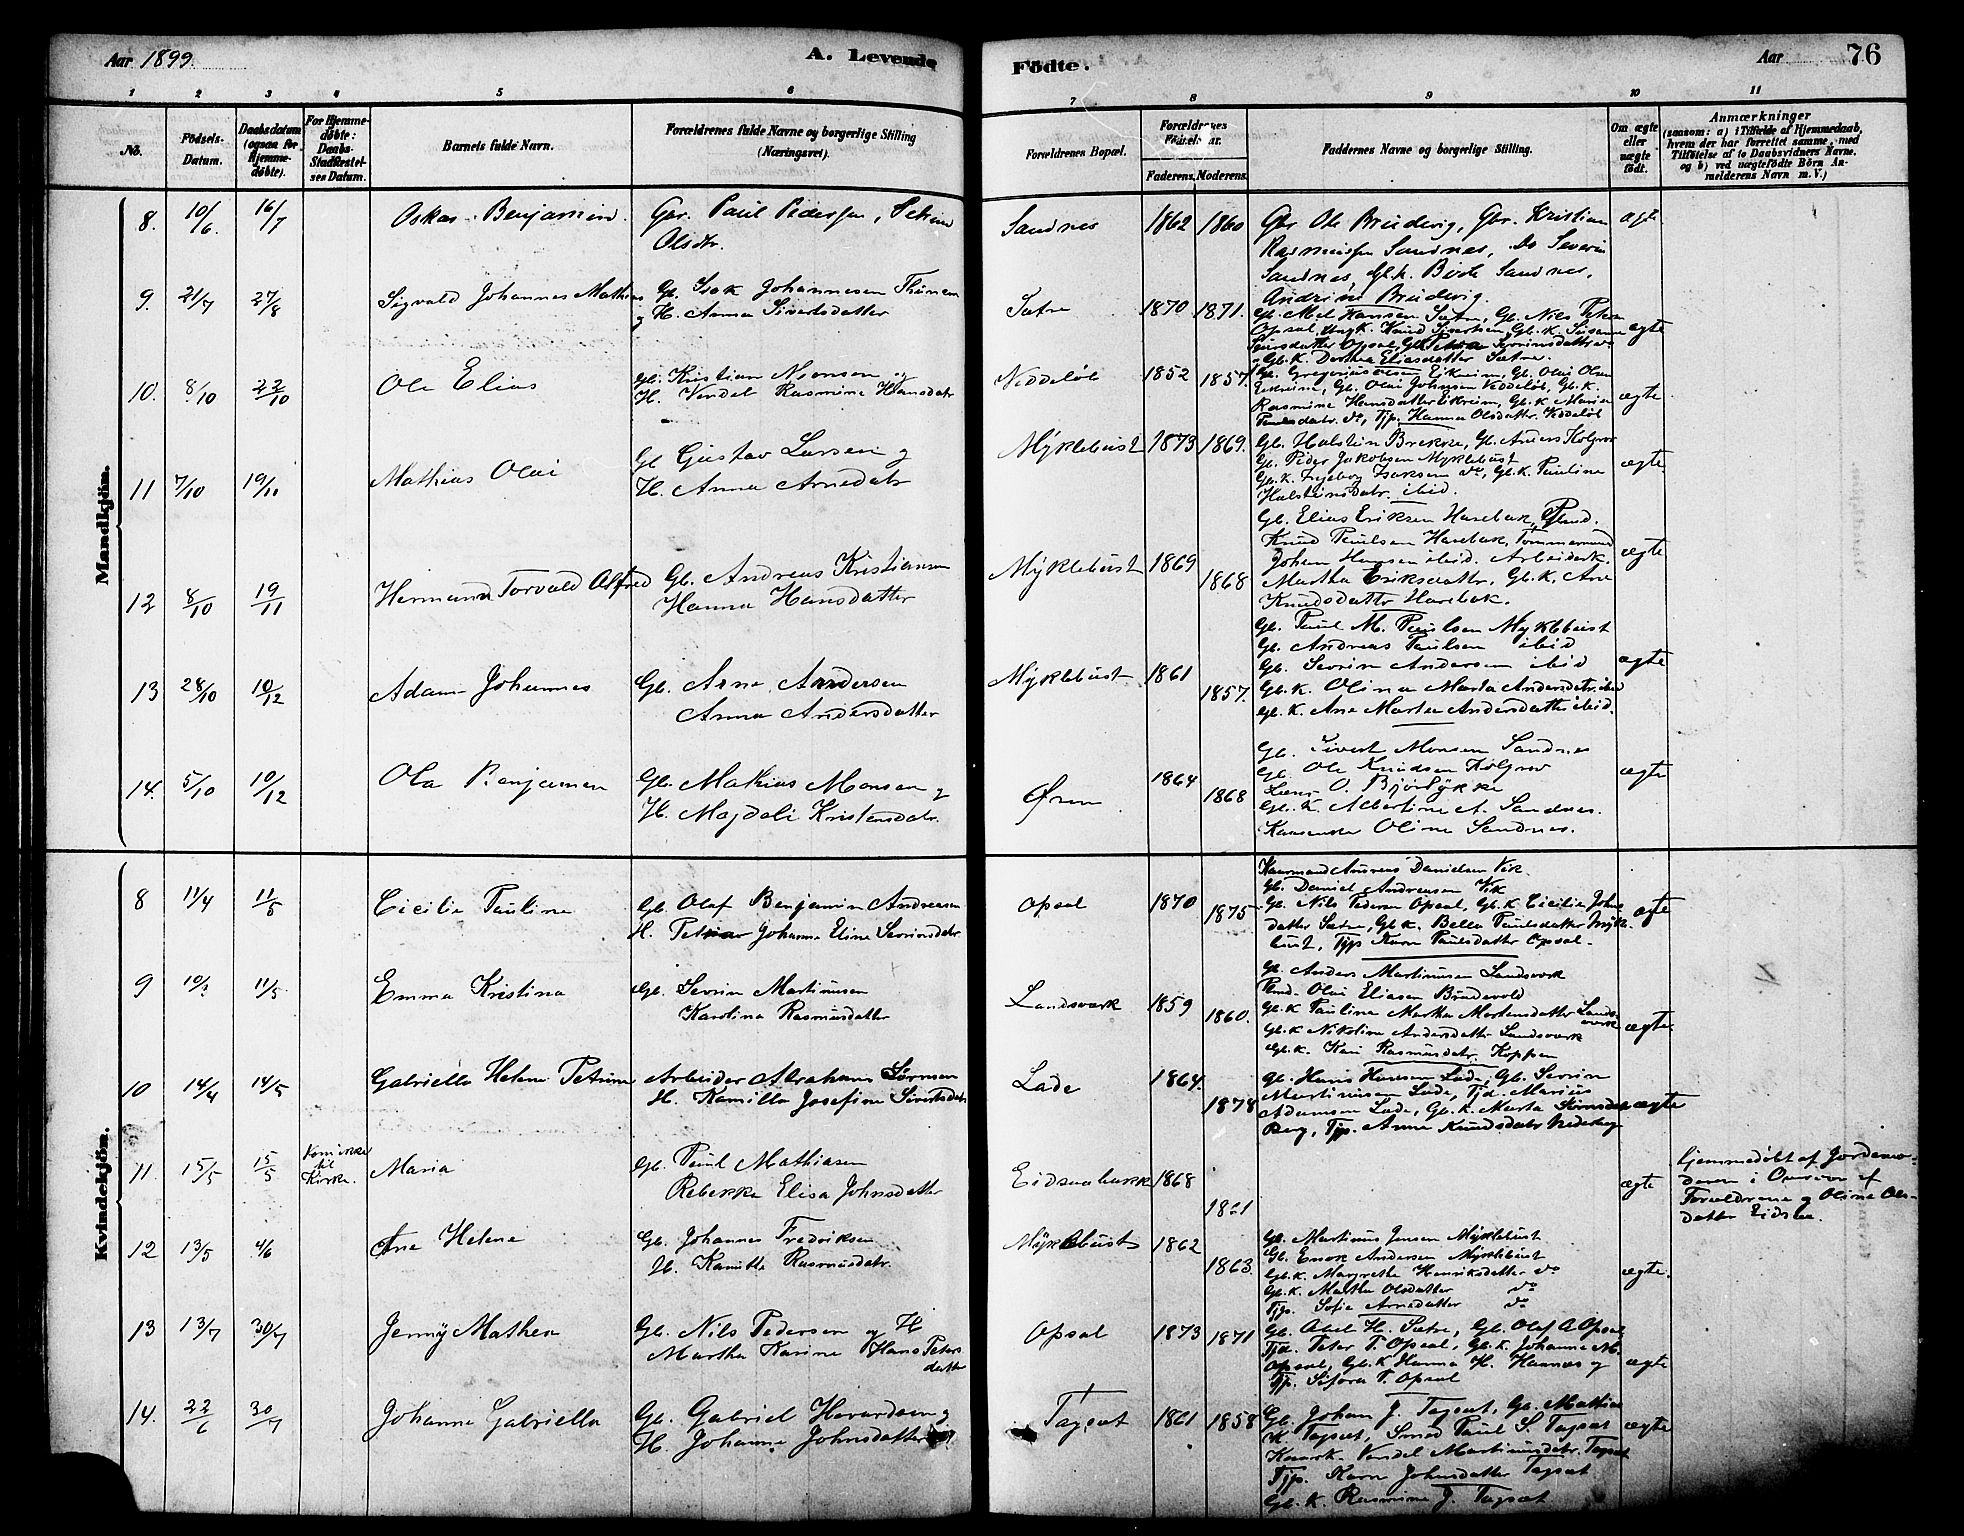 Aar 1899. A. Levende Födte. Aar 76
1 2 3 4 5 6 7 8 9 10 11
No. Födsels-Datum. Daabsdatum (ogsaa for Hjemme-døbte). For Hjemme-døbte: Daabs-Stadfæstel-ses Datum. Barnets fulde Navn. Forældrenes fulde Navne og borgerlige Stilling (Næringsvei). Forældrenes Bopæl. Forældrenes Faderens, Moderens. Faddernes Navne og borgerlige Stilling. Om ægte eller uægte født. Anmærkninger
(saasom: a) i Tilfælde af Hjemmedaab,
hvem der har forrettet samme, med
Tilföielse af to Daabsvidners Navne.
og b) ved uægtefödte Börn An-
melderens Navn m. V.)
Mandkjön.
8. 10/6. 16/7 Oskar Benjamin. Gbr. Paul Pedersen,
Olsdtr. Sandnes 1862 1860 Gbr Ole Brudevig, Gbr. Kristian
Rasmussen Sandnes, Do Severin
Sandnes, Gl.k. Sandnes,
Andrine Brudevig. ægte
9. 21/7 27/8 Sigvald Johannes Mathias Gb. Isak Johannesen
og H. Anna Sivertsdatter Sætre 1870 1871. Hansen Sætre, Gb. Nils Peter
Opsal, Ungk. Knud Sivertsen, Gb. K. Susanne
datter Opsal,
Gb.K. Eliasdatter Sætre. ægte
10. 8/10 22/10 Ole Elias Gb. Kristian Monsen og
H. Vendel Rasmine Hansdatr Veddeløb 1852 1857. Gb. Gregorius Eikrem, Gb. Olai Olsen
Eikrem, Gb. Olai Johnsen Veddeløb, Gb. K.
Rasmine Hansdatter Eikrem, Gb. K Maria
do, Tjp. Hanna Olsdattr. Veddeløb ægte
11 7/10 19/11 Mathias Olai Gb Gustav Larsen og
H. Anna Arnedatr Myklebust 1873 1869. Gb. Halstein Brekke, Gb. Anders Kolgrov
Gb. Peder Jakobsen Myklebust
Gb.K. Ingeborg Isaksen do, Gb.K. Pauline
Halsteinsdatr. ibid. ægte
12 8/10 19/11 Hermann Torvald Alfred Gb. Andreas Kristiansen
Hanna Hansdatter Myklebust 1869 1868 Gb. Elias Eriksen Harebak,
Knud Paulsen Harebak, Tømmermand
Johan Hansen ibid. Arbeidsk.
Martha Eriksdatter, Gb.K. Ane
Knudsdattr Harebak. ægte
13 28/10 10/12 Adam Johannes Gb. Arne Andersen
Anna Andersdatter Myklebust 1861 1857. Gb. Paul M. Paulsen Myklebust
Gb. Andreas Paulsen ibid
Gb. Sevrin Andersen ibid
Gb.K. Olina Marta Andersdatr. ibid
Gb.K. Ane Marta Andersdatter ibid. ægte
14. 5/10 10/12 Ole Benjamin Gb. Mathias Monsen og
H. Magdali Kristensdatr. Øren 1864 1868 Gb. Sivert Monsen Sandnes
Gb. Ole Knudsen Kolgrov
O. Bjørlykke
Gb.K. Albertine A. Sandnes.
Oline Sandnes. ægte
Kvindekjön.
8 11/4 11/5 Cicilie Pauline Gb. Olaf Benjamin Andreasen
H. Johanne Eline Sevrinsdatr. Opsal 1870 1875 Kaarmand Andreas Danielsen Vik
Gb. Daniel Andreasen Vik
Gb. Nils Pedersen Opsal, Gb.K Cicilie Johns
datter Sætre, Gb.K. Bella Paulsdatter Mykle-
bust, Tjp Karn Paulsdatter Opsal. ægte
9 11/5 Emma Kristina Gb. Sevrin Martinusen
Karolina Rasmusdatter Landsverk 1859 1860. Gb. Anders Martinusen Landsverk
Olai Eliasen Brudevold
Gb.K Paulina Martha Mortensdatter Lands-
verk
Gb.K Nikoline Andersdatter Landsverk
Gb.K. Kari Rasmusdatr. Koppen ægte
10 14/4 14/5 Gabriella Helene Petrine Arbeider Abraham Sørensen
H. Kamilla Josefine Sivertsdatr Lade 1864. 1874 Gb. Hans Hansen Lade, Gb. Sevrin
Martinusen Lade, Tjd. Marius
Adamsen Lade, Gb.K. Marta
Berg, Tjp. Anne Knudsdatr ægte
11. 15/5 15/5 Kom ikke
til
Kirke. Maria Gb. Paul Mathiasen
Rebekka Elisa Johnsdatter Eidsaabakk 1868 ægte hjemmedøbt af Jordemo-
deren i Overvær af
Forældrene og Oline Ols-
datter Eidsaa.
12 13/5 4/6 Ane Helene Gb. Johannes Fredriksen
H. Kamilla Rasmusdatr. Myklebust 1862 1863. Gb. Martinus Jensen Myklebust
Gb. Enok Andersen Myklebust
Gb.K. Margrethe Henriksdatter do
Gb.K. Martha Olsdatter do
Tjp. Sofie Arnedatter do ægte.
13 13/7 30/7 Jenny Mathea Gb. Nils Pedersen og H
Martha Karine Hans Peters
datter Opsal 1873 1871 Gb. Abel H. Sætre, Gb. Olaf A Opsal
Tjd. Peter P. Opsal, Gb.K. Johanne M.
Opsal, Gb.K Hanna H. og
Tjp. Sefora P. Opsal ægte
14. 22/6 30/7 Johanne Gabriella Gb. Gabriel Havardsen og
H. Johanne Johnsdatter Tagsæt 1861 1858 Gb. Johan J. Tagsæt, Gb. Mathias
K. Tagsæt, Smed Paul S. Tagsæt
Vendel Martinusdatr. Tagsæt
Tjp. Karn Johnsdatter Tagsæt
Gb.K. Rasmine J. Tagsæt ægte